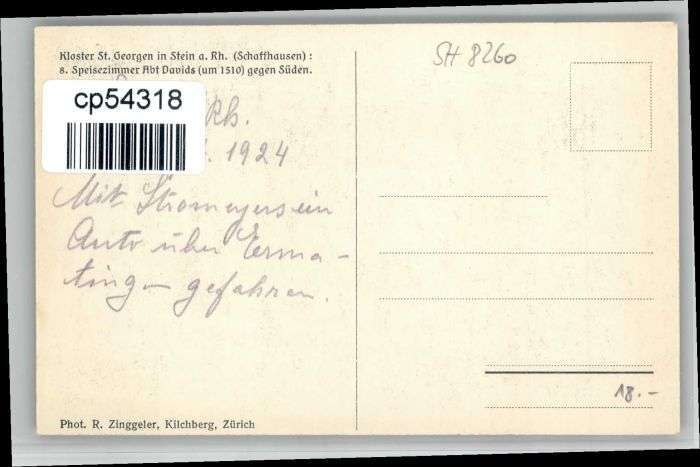 Kloster St. Georgen in Stein a. Rh. (Schaffhausen) :
8. Speisezimmer Abt Davids (um 1510) gegen Süden.
SH 8260
cp54318
Rh.
1924
Mit Stromeyers ein
Auto über Erma-
tingen gefahren.
18.-
Phot. R. Zinggeler, Kilchberg, Zürich